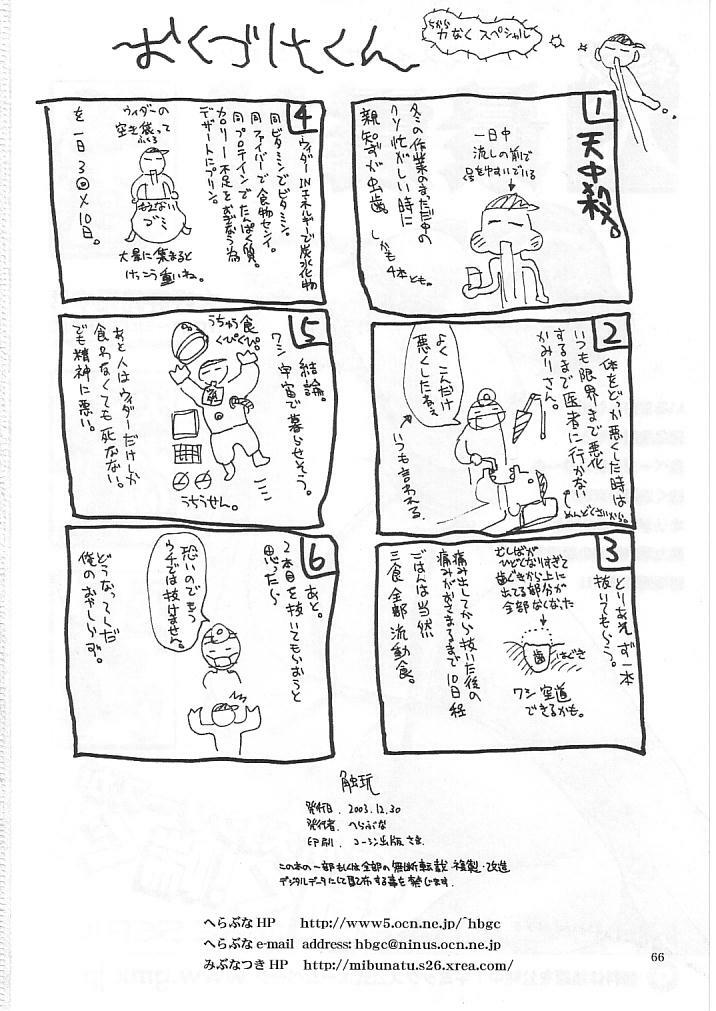 おくづけくん
ちから
力なく スペシャル
1
天中殺。
一日中
流しの前で
冬の作業のまっただ中の
クソ忙がしい時に
親知ずが虫歯。
しかも4本とも。
2
体をどっか悪くした時は
いつも限界まで悪化
するまで医者に行かない
かみりさん。
めんどくさいから。
よくこんだけ
悪くしたねぇ
いつも言われる
3
とりあえず一本
抜いてもらう。
ひどすぎて
歯ぐきから上が
出てる部分が
全部なくなった
歯
はぐき
ワシ空道
できるかも。
痛み出してから抜いた後の
痛みがおさまるまで10日経
ごはんは当然
三食全部流動食。
4
ウィダーINエネルギーで炭水化物
同ビタミンでビタミン。
同ファイバーで食物センイ。
同プロテインでたんぱく質。
カロリー不足をおぎなう為
デザートにプリン。
ウィダーの
空き袋って
もえない
ゴミ
大量に集まると
けっこう重いね。
を一日3回×10日。
5
結論。
ワシ宇宙で暮らせそう。
うちゅう食
くぴくぴ。
うちうせん。
あと人はウィダーだけしか
食わなくても死なない。
でも精神に悪い。
6
あと。
2本目を抜いてもらおうと
思ったら
恐いのでもう
ウチでは抜けません。
どうなってんだ
俺のおやしらず。
触玩
発行日. 2003.12.30
発行者. へらぶな
印刷. コーシン出版さま
この本の一部もしくは全部の無断転載・複製・改造
デジタルデータにして配布する事を禁じます.
へらぶな HP http://www5.ocn.ne.jp/~hbgc
へらぶな e-mail address: hbgc@ninus.ocn.ne.jp
みぶなつき HP http://mibunatu.s26.xrea.com/
66